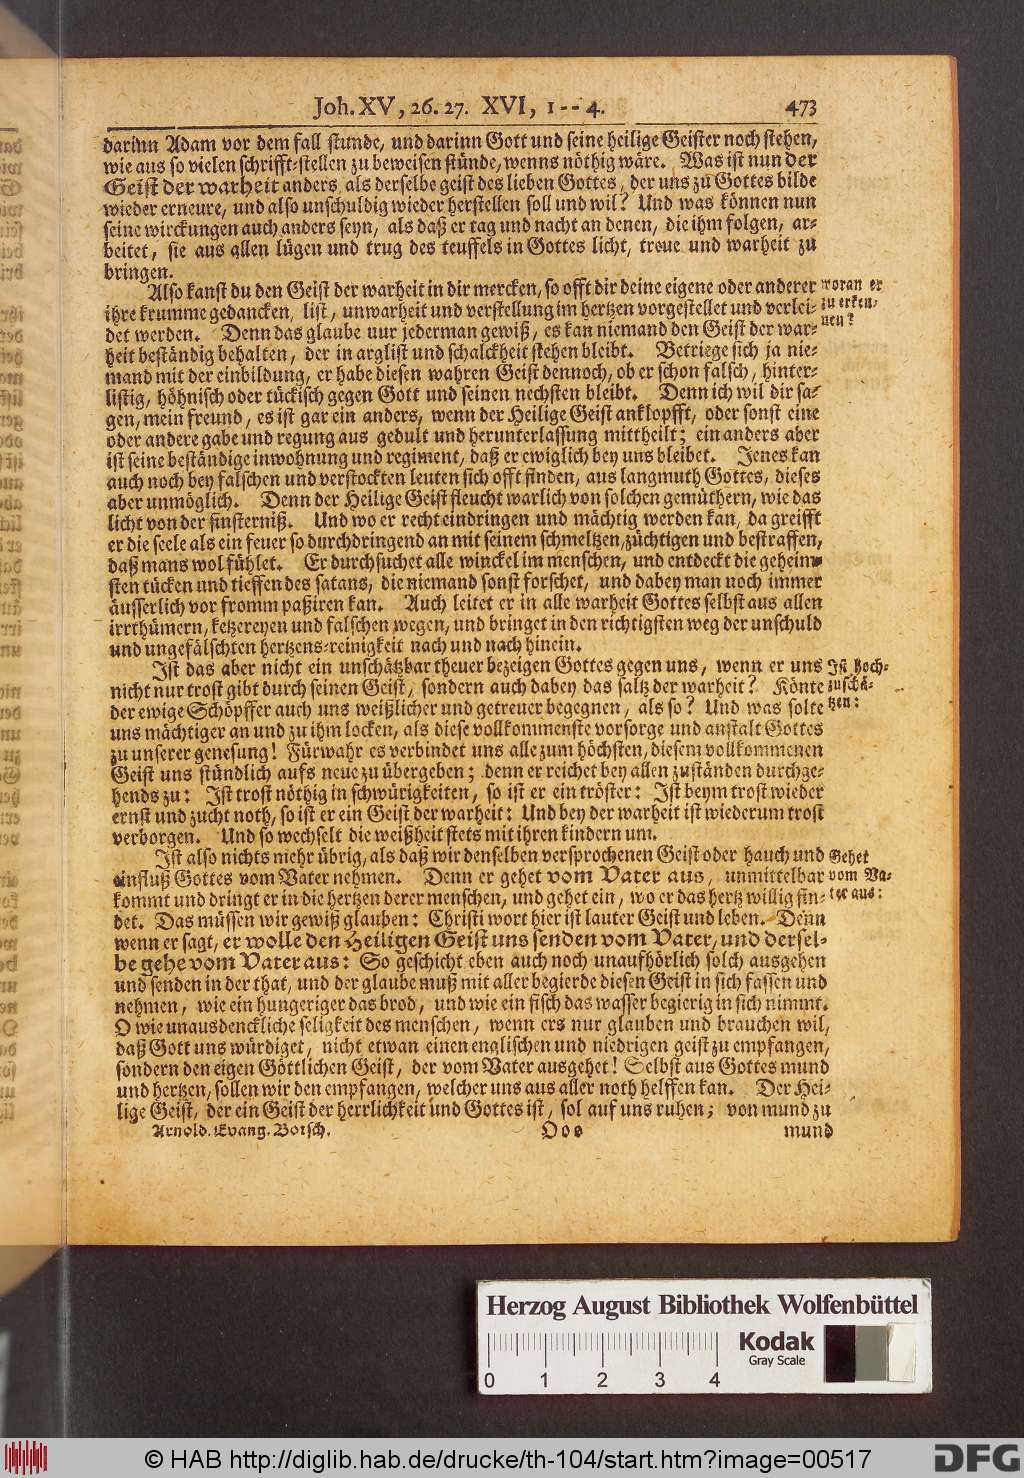 Joh. XV, 26. 27. XVI, 1--4. 473
darinn Adam vor dem fall stunde, und darinn Gott und seine heilige Geister noch stehen,
wie aus so vielen schrifft-stellen zu beweisen stünde, wenns nöthig wäre. Was ist nun der
Geist der warheit anders als derselbe geist des lieben Gottes, der uns zu Gottes bilde
wieder erneure, und also unschuldig wieder herstellen soll und wil? Und was können nun
seine wirckungen auch anders seyn, als daß er tag und nacht an denen, die ihm folgen, ar-
beitet, sie aus allen lügen und trug des teuffels in Gottes licht, treue und warheit zu
bringen.
Also kanst du den Geist der warheit in dir mercken, so offt dir deine eigene oder anderer
woran er
ihre krumme gedancken, list, unwarheit und verstellung im hertzen vorgestellet und verlei-
zu erken-
det werden. Denn das glaube nur jederman gewiß, es kan niemand den Geist der war-
nen?
heit beständig behalten, der in arglist und schalckheit stehen bleibt. Betriege sich ja nie-
mand mit der einbildung, er habe diesen wahren Geist dennoch, ob er schon falsch, hinter-
listig, höhnisch oder tückisch gegen Gott und seinen nechsten bleibt. Denn ich wil dir sa-
gen, mein freund, es ist gar ein anders, wenn der Heilige Geist anklopfft, oder sonst eine
oder andere gabe und regung aus gedult und herunterlassung mittheilt; ein anders aber
ist seine beständige inwohnung und regiment, daß er ewiglich bey uns bleibet. Jenes kan
auch noch bey falschen und verstockten leuten sich offt finden, aus langmuth Gottes, dieses
aber unmöglich. Denn der Heilige Geist fleucht warlich von solchen gemüthern, wie das
licht von der finsterniß. Und wo er recht eindringen und mächtig werden kan, da greifft
er die seele als ein feuer so durchdringend an mit seinem schmeltzen, züchtigen und bestraffen,
daß mans wol fühlet. Er durchsuchet alle winckel im menschen, und entdeckt die geheim-
sten tücken und tieffen des satans, die niemand sonst forschet, und dabey man noch immer
äusserlich vor fromm paßiren kan. Auch leitet er in alle warheit Gottes selbst aus allen
irrthümern, ketzereyen und falschen wegen, und bringet in den richtigsten weg der unschuld
und ungefälschten hertzens-reinigkeit nach und nach hinein.
Ist das aber nicht ein unschätzbar theuer bezeigen Gottes gegen uns, wenn er uns
Ist hoch-
nicht nur trost gibt durch seinen Geist, sondern auch dabey das saltz der warheit? Könte
zuschä-
der ewige Schöpffer auch uns weißlicher und getreuer begegnen, als so? Und was solte
tzen:
uns mächtiger an und zu ihm locken, als diese vollkommenste vorsorge und anstalt Gottes
zu unserer genesung! Fürwahr es verbindet uns alle zum höchsten, diesem vollkommenen
Geist uns stündlich aufs neue zu übergeben; denn er reichet bey allen zuständen durchge-
hends zu: Ist trost nöthig in schwürigkeiten, so ist er ein tröster: Ist beym trost wieder
ernst und zucht noth, so ist er ein Geist der warheit: Und bey der warheit ist wiederum trost
verborgen. Und so wechselt die weißheit stets mit ihren kindern um.
Ist also nichts mehr übrig, als daß wir denselben versprochenen Geist oder hauch und
Gehet
einfluß Gottes vom Vater nehmen. Denn er gehet vom Vater aus, unmittelbar
vom Va-
kommt und dringt er in die hertzen derer menschen, und gehet ein, wo er das hertz willig fin-
ter aus:
det. Das müssen wir gewiß glauben: Christi wort hier ist lauter Geist und leben. Denn
wenn er sagt, er wolle den Heiligen Geist uns senden vom Vater, und dersel-
be gehe vom Vater aus: So geschicht eben auch noch unaufhörlich solch ausgehen
und senden in der that, und der glaube muß mit aller begierde diesen Geist in sich fassen und
nehmen, wie ein hungeriger das brod, und wie ein fisch das wasser begierig in sich nimmt.
O wie unausdenckliche seligkeit des menschen, wenn ers nur glauben und brauchen wil,
daß Gott uns würdiget, nicht etwan einen englischen und niedrigen geist zu empfangen,
sondern den eigen Göttlichen Geist, der vom Vater ausgehet! Selbst aus Gottes mund
und hertzen, sollen wir den empfangen, welcher uns aus aller noth helffen kan. Der Hei-
lige Geist, der ein Geist der herrlichkeit und Gottes ist, sol auf uns ruhen; von mund zu
Arnold. Evang. Botsch. Ooo mund
Herzog August Bibliothek Wolfenbüttel
Kodak
Gray Scale
0 1 2 3 4
© HAB http://diglib.hab.de/drucke/th-104/start.htm?image=00517
DFG